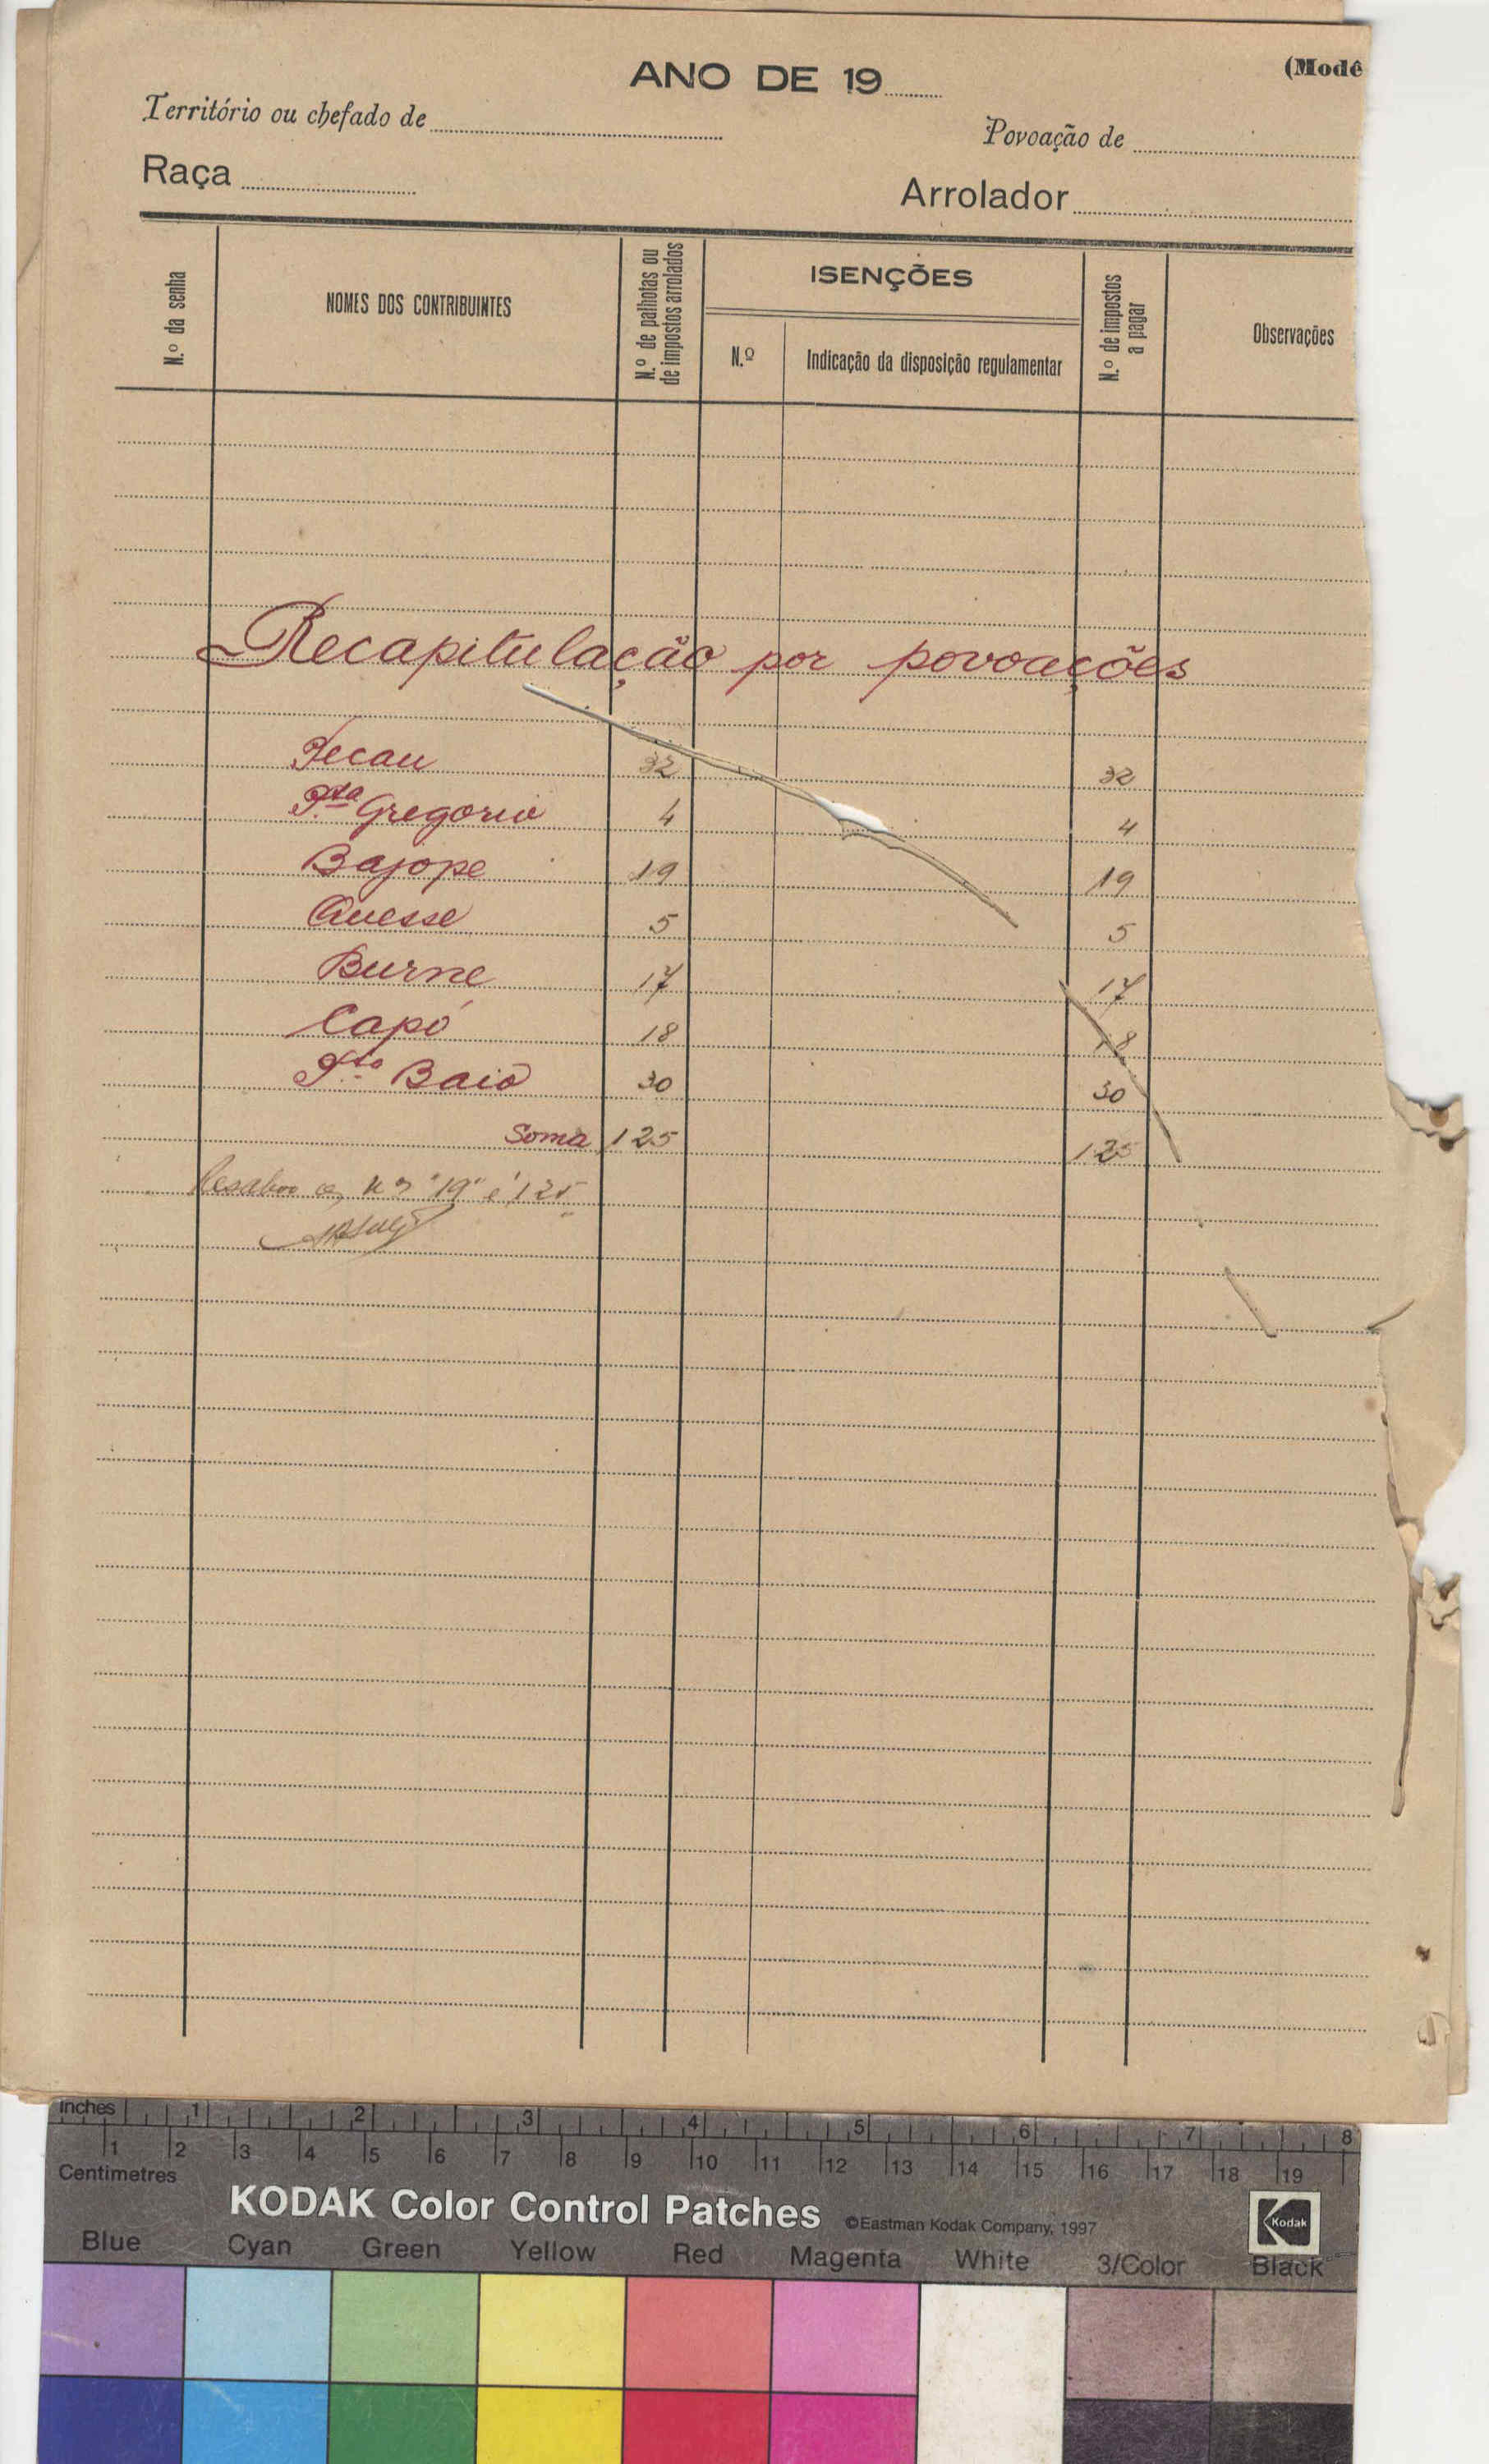 ANO DE 19
(Modê
Território ou chefado de
Povoação de
Raça
Arrolador
N.º da senha
NOMES DOS CONTRIBUINTES
N.º de palhotas ou de impostos arrolados
ISENÇÕES
N.º
Indicação da disposição regulamentar
N.º de impostos a pagar
Observações
Recapitulação por povoações
Pecau 32 32
P.ta Gregorio 4 4
Bajope 19 19
Quesse 5 5
Burne 17 17
Capó 18 18
Baio 30 30
Soma 125 125
"19" é 125
Inches 1 2 3 4 5 6 7 8
1 2 3 4 5 6 7 8 9 10 11 12 13 14 15 16 17 18 19
Centimetres
KODAK Color Control Patches ©Eastman Kodak Company, 1997 Kodak
Blue Cyan Green Yellow Red Magenta White 3/Color Black